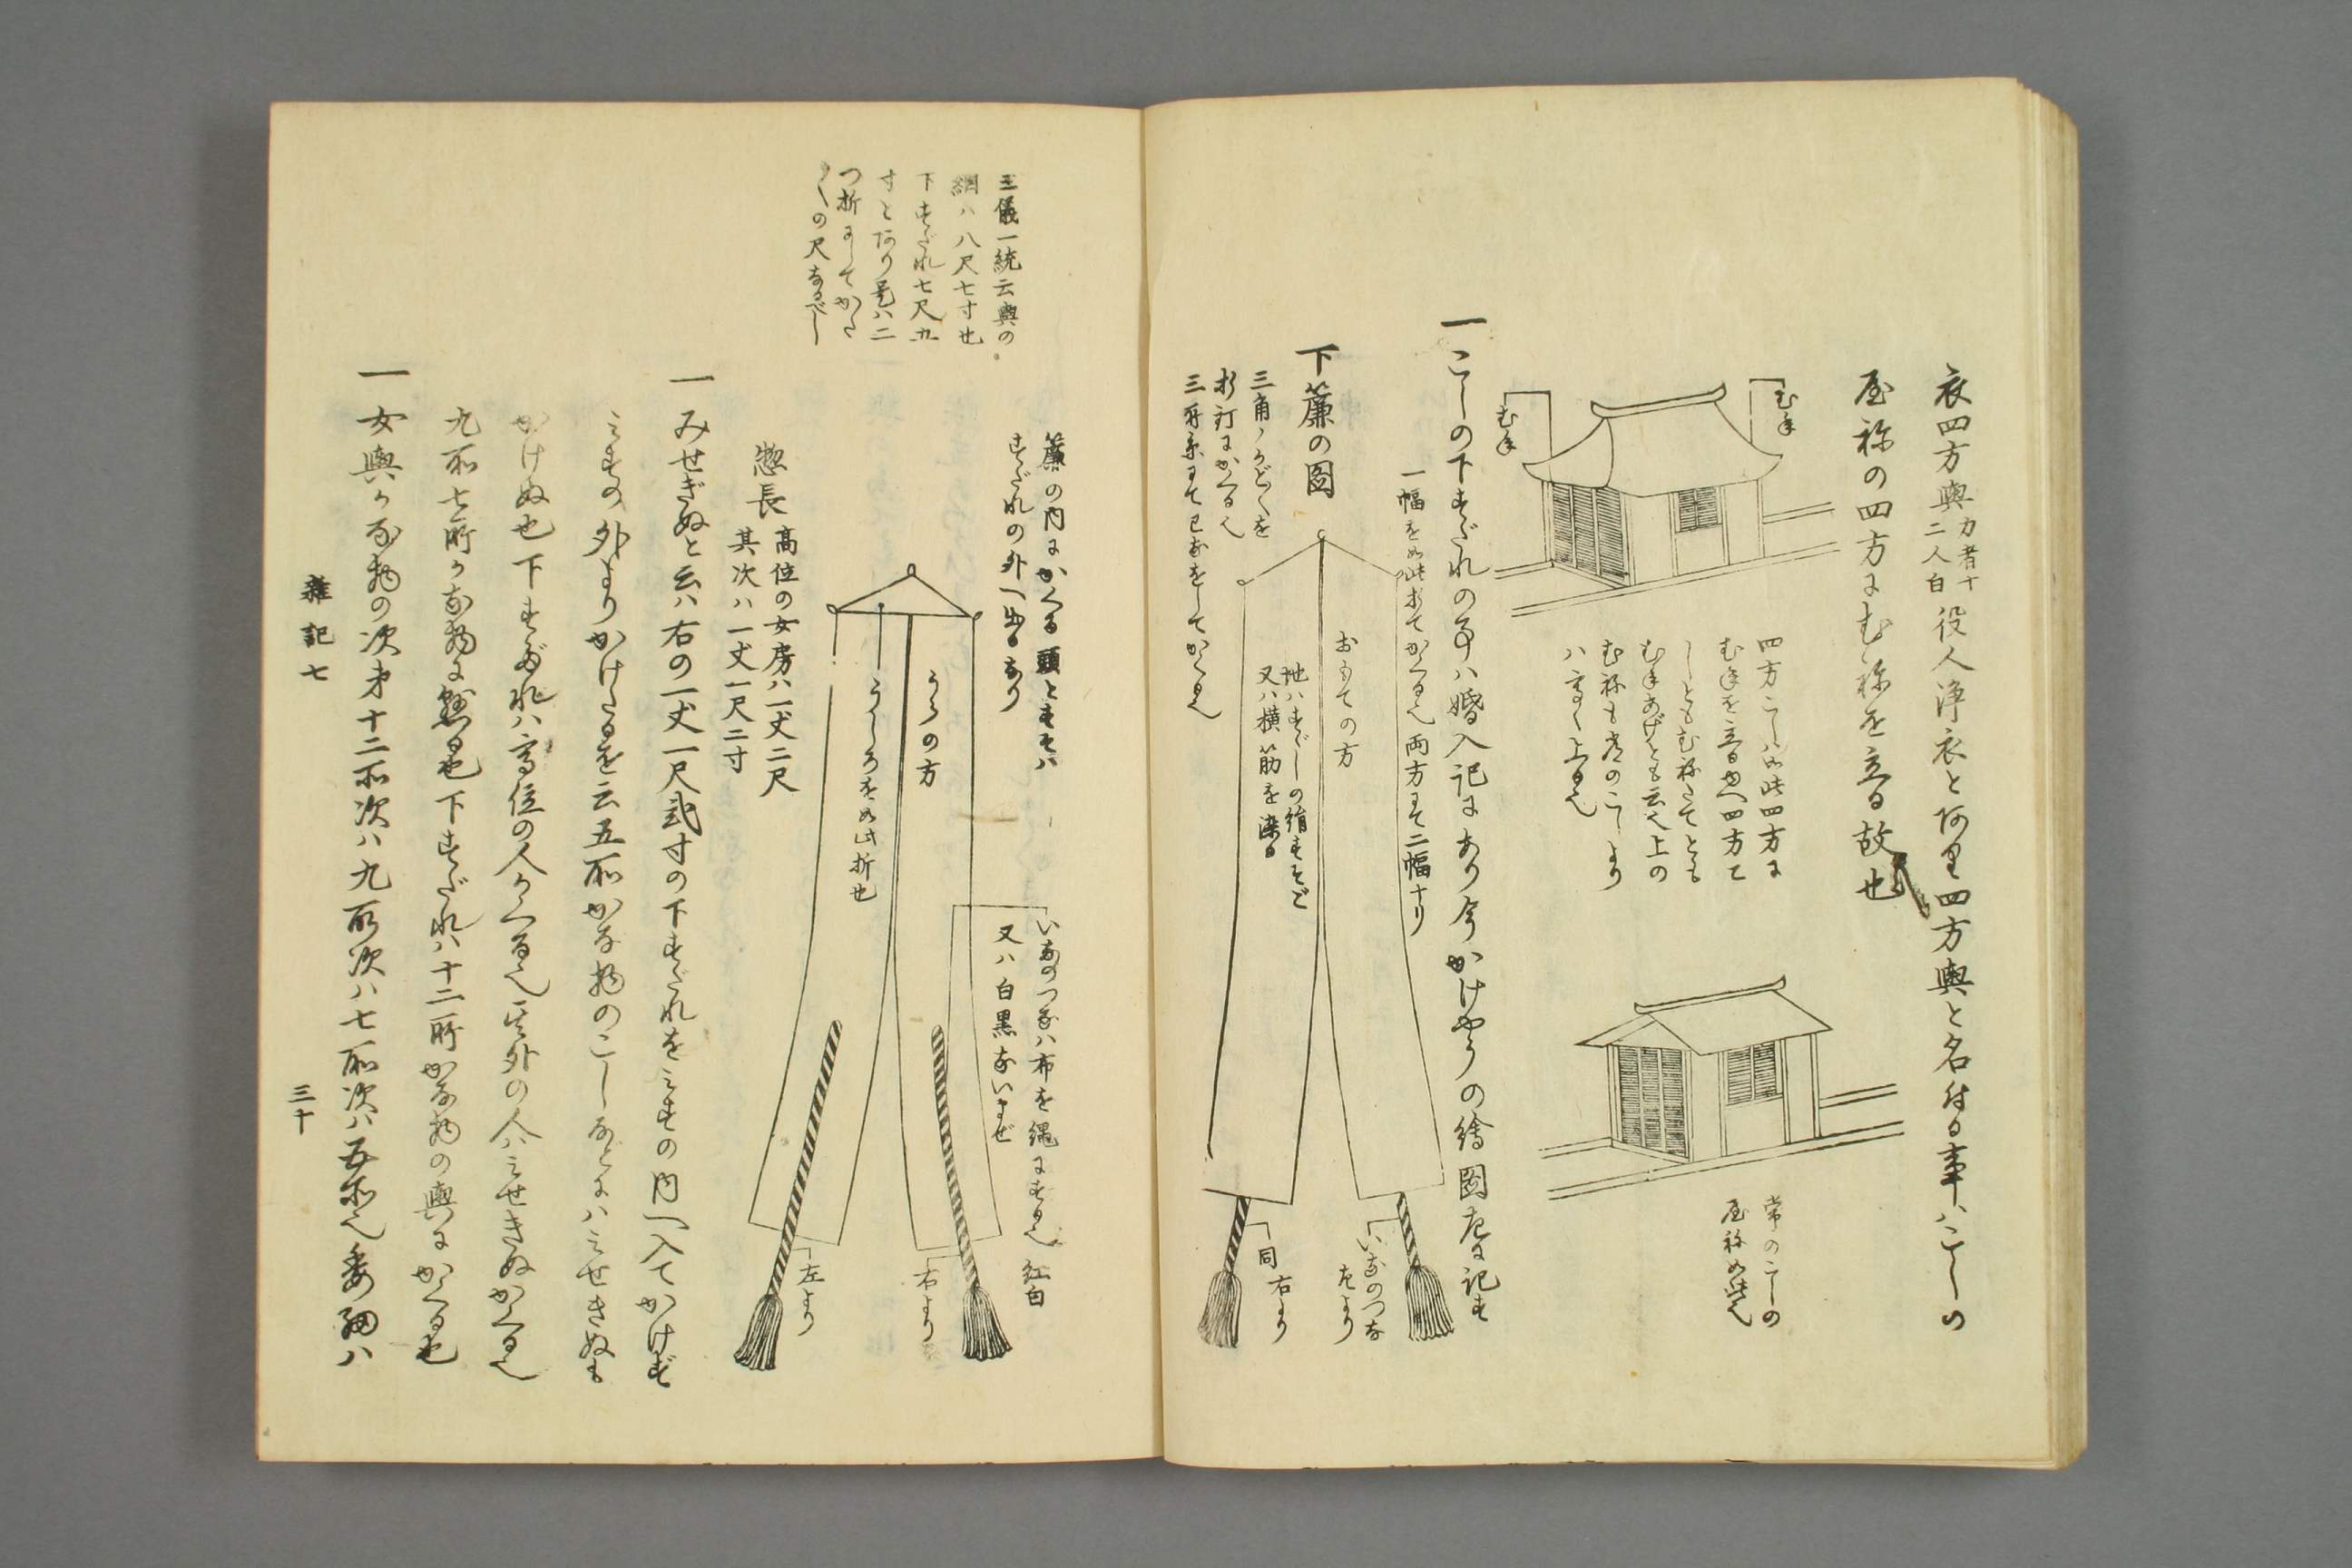 衣四方輿力者十二人白役人浄衣と阿里四方輿と名付る事ハこしの
屋祢の四方にむ祢を立る故也
むね
むね
四方こしハ如此四方に
むねを立る也四方て
しともむねたてとも
むねあげとも云也上の
むねも常のこしより
ハ高く上る也
常のこしの
屋祢如此也
一こしの下すだれの事ハ婚入記にあり今かけやうの繪圖左に記す
一幅を如此折てかくる也両方にて二幅ナリ
下簾の圖
おもての方
地ハすゞしの絹すそご
又ハ横筋を染る
三角ノかどを
折釘にかくる也
いなのつな
左より
同
右より
簾の内にかくる頭とすそハ
すだれの外へ出るなり
いなのつなハ布を縄にする也 紅白
又ハ白黒ないまぜ
うらの方
うしろを如此折也
右より
左より
惣長
高位の女房ハ一丈二尺
其次ハ一丈一尺二寸
三儀一統云輿の
綱ハ八尺七寸也
下すだれ七尺九
寸とあり是ハ二
つ折にしてかた
〳〵の尺なるべし
一みせぎぬと云ハ右の一丈一尺弐寸の下すだれをみすの内へ入てかけず
みすの外よりかけたるを云五所かな物のこしなどにハみせきぬも
かけぬ也下すだれハ高位の人かくる也其外の人ハみせきぬかくる也
九所七所かな物に懸る也下すだれハ十二所かな物の輿にかくる也
一女輿かな物の次第十二所次ハ九所次ハ七所次ハ五所也委細ハ
雑記七
三十